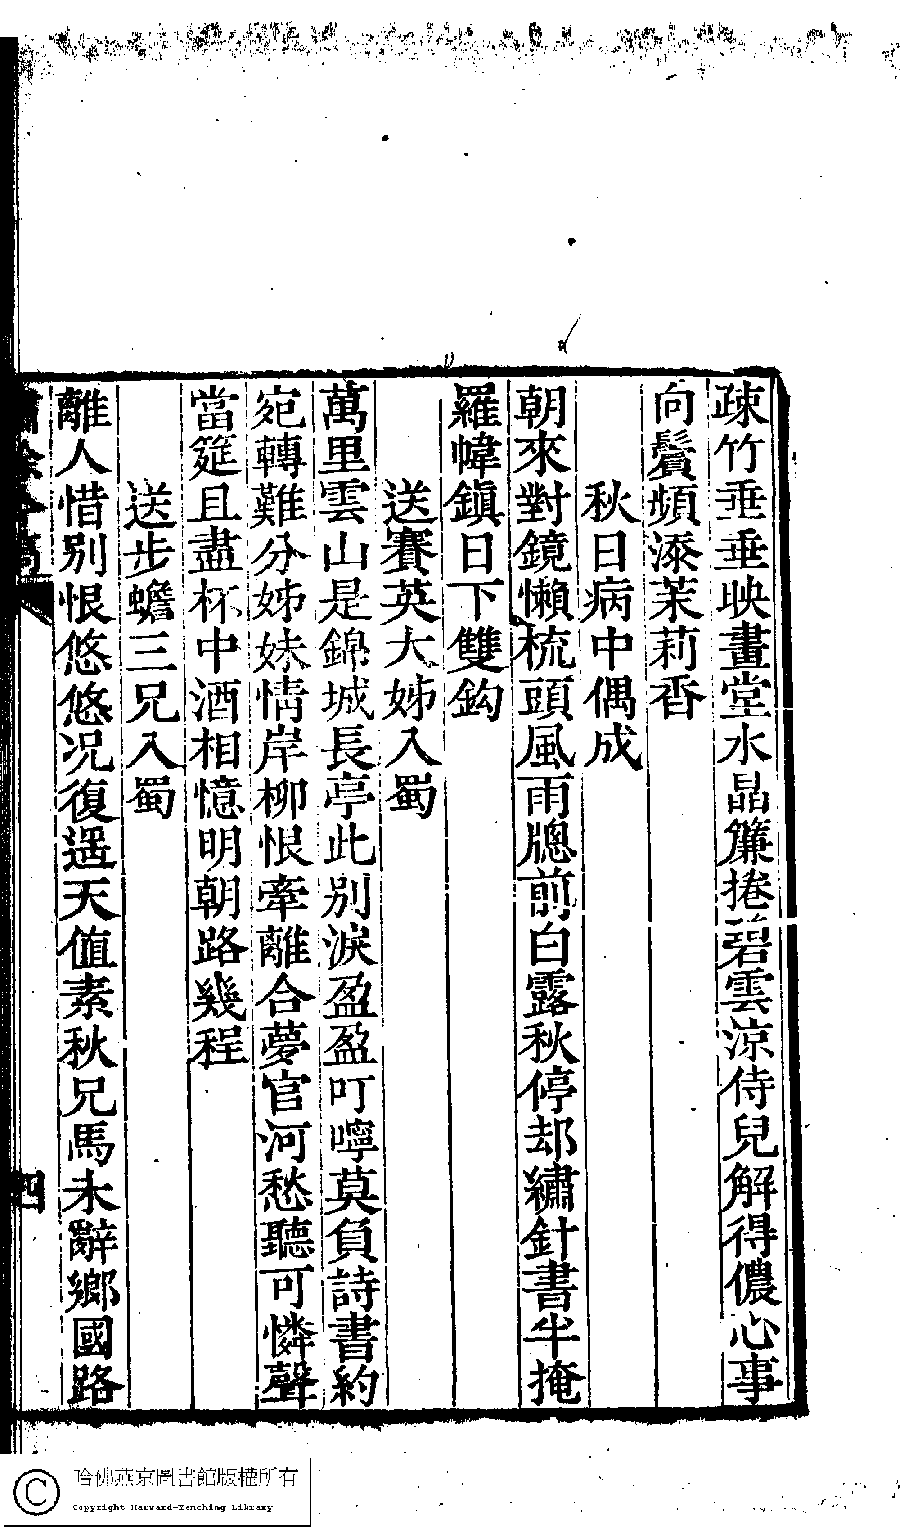 疎竹垂垂映畫堂水晶簾捲碧雲涼侍兒解得儂心事
向鬢頻添茉莉香
秋日病中偶成
朝來對鏡懶梳頭風雨牎前白露秋停却繡針書半掩
羅幃鎮日下雙鈎
送賽英大姊入蜀
萬里雲山是錦城長亭此別淚盈盈叮嚀莫負詩書約
宛轉難分姊妹情岸柳恨牽離合夢官河愁聽可憐聲
當筵且盡杯中酒相憶明朝路幾程
送步蟾三兄入蜀
離人惜別恨悠悠况復遥天值素秋兄馬未辭鄉國路
四
哈佛燕京圖書館版權所有
Copyright Harvard-Yenching Library